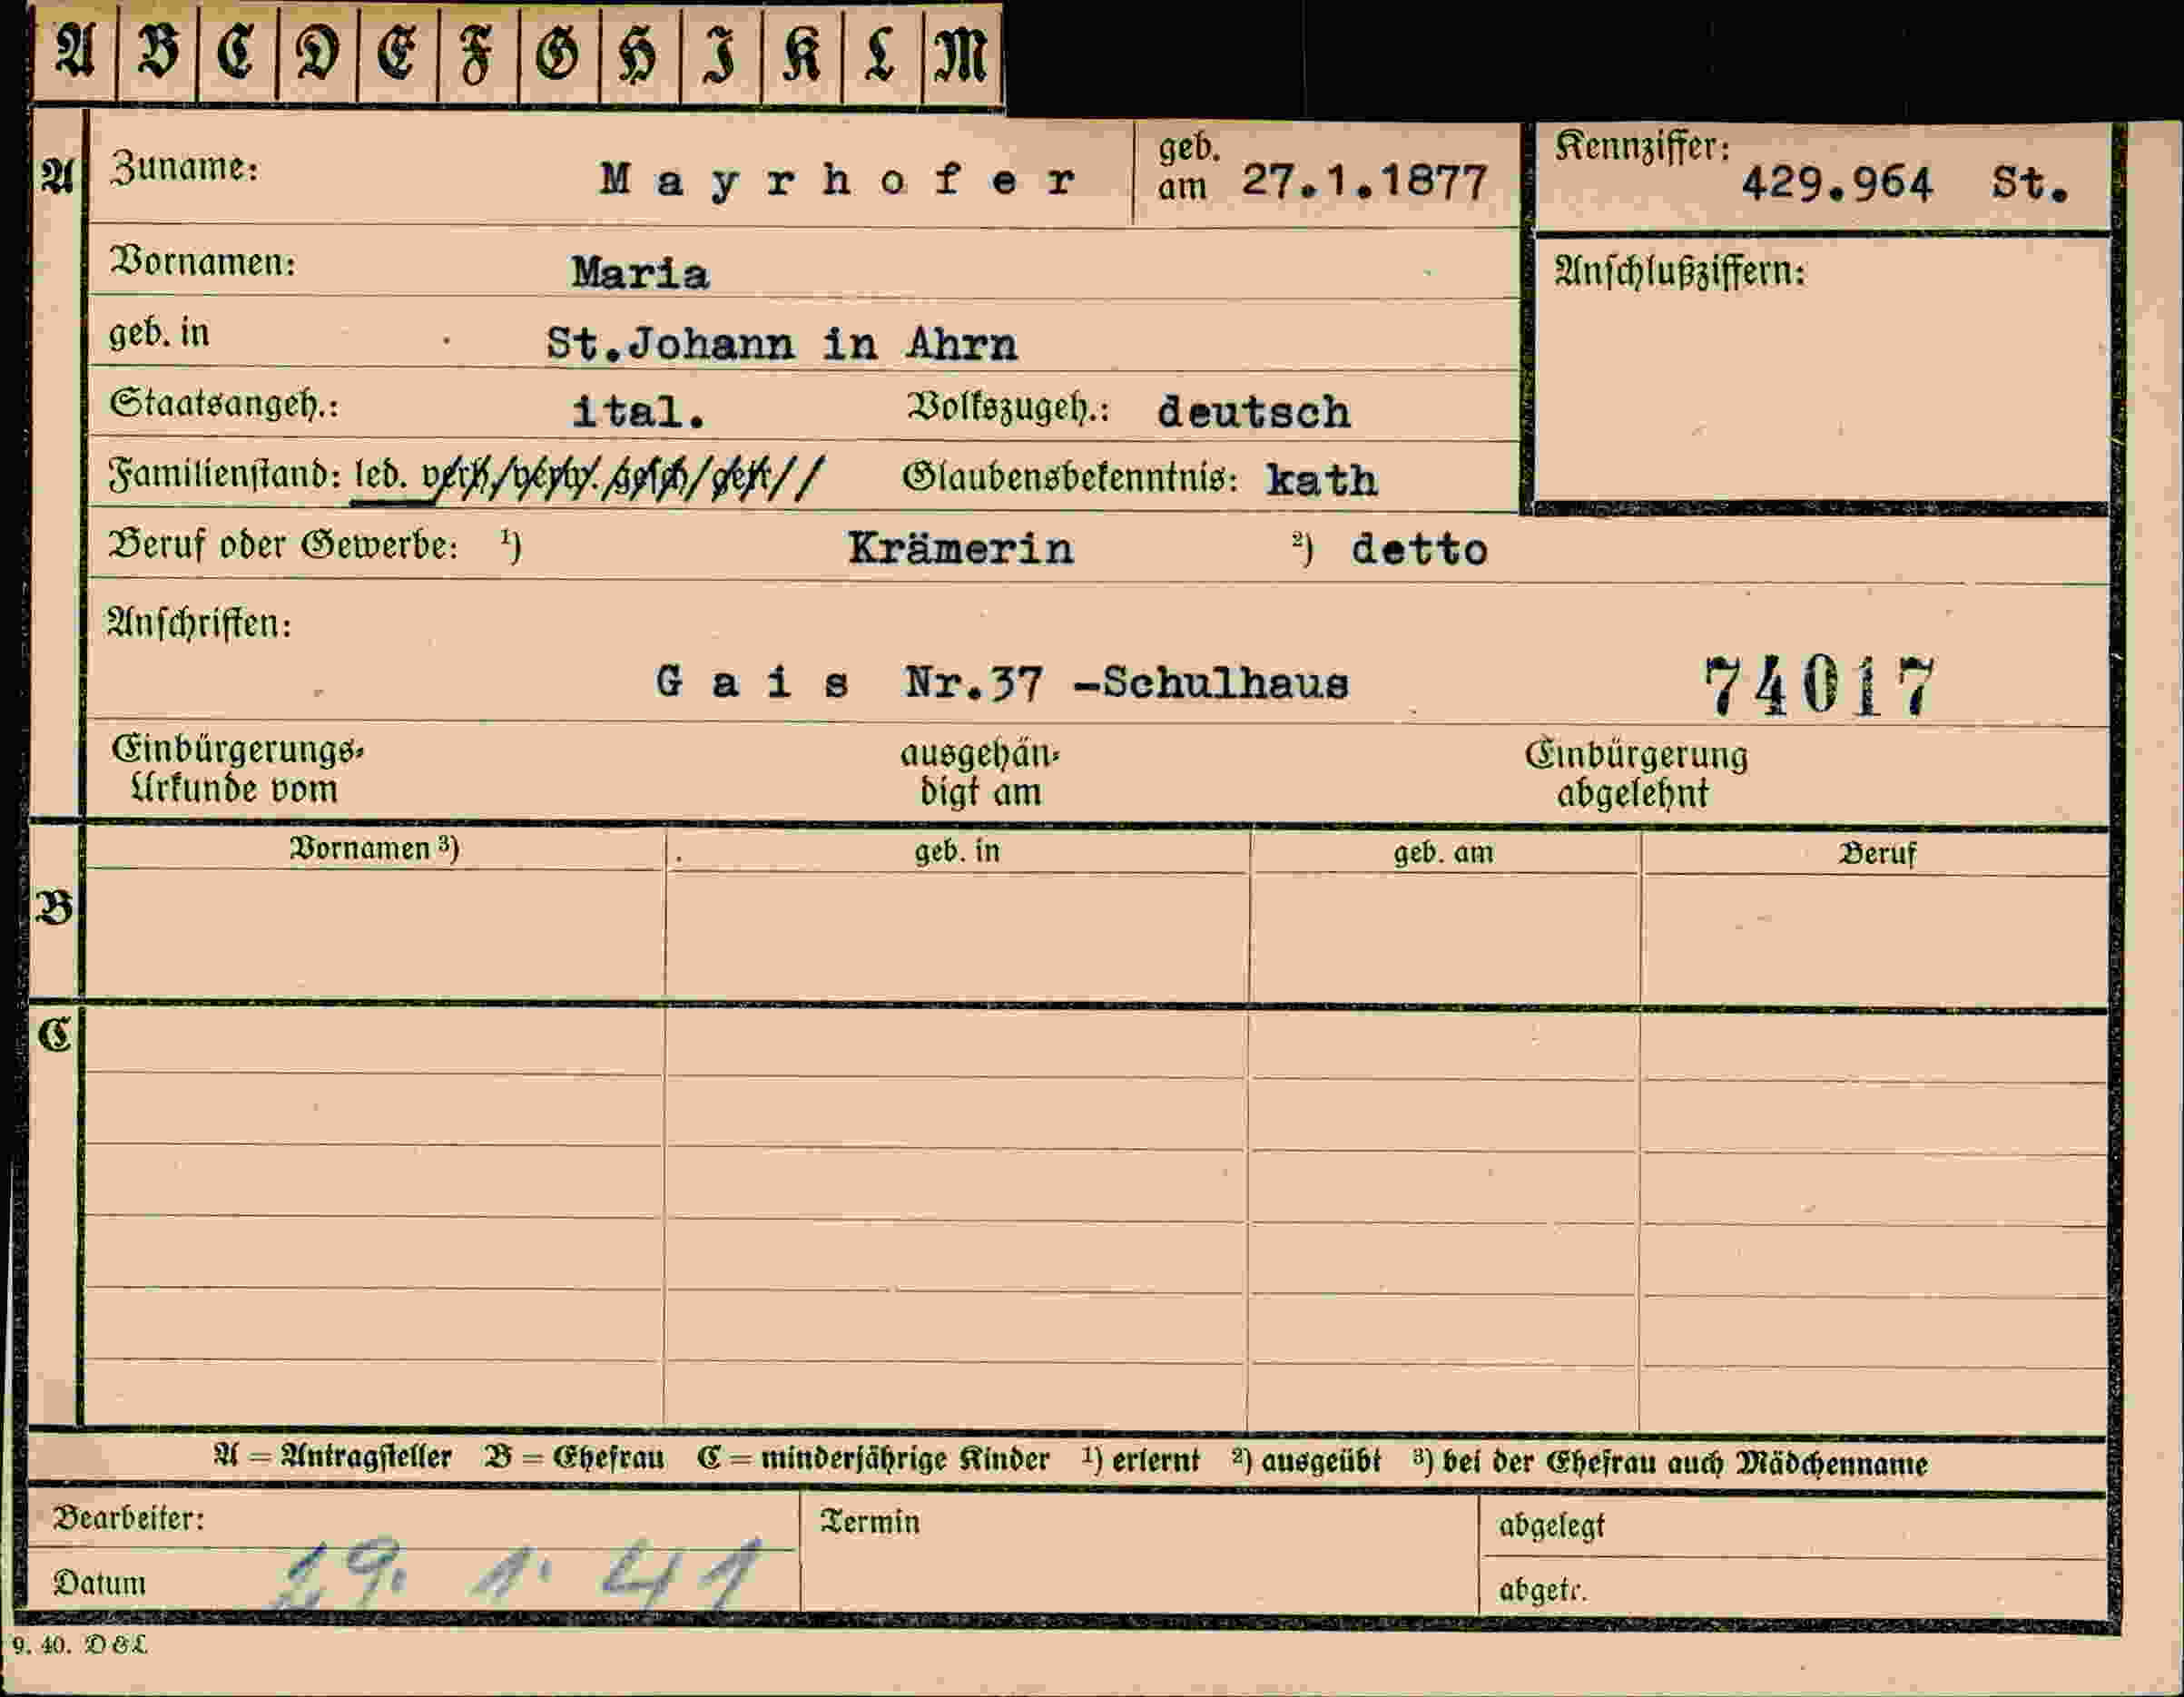 A B C D E F G H I K L M
A Zuname: Mayrhofer geb. am 27.1.1877 Kennziffer: 429.964 St.
Vornamen: Maria Anschlußziffern:
geb. in St.Johann in Ahrn
Staatsangeh.: ital. Volkszugeh.: deutsch
Familienstand: led. verh. verw. gesch. getr. Glaubensbekenntnis: kath
Beruf oder Gewerbe: ¹) Krämerin ²) detto
Anschriften:
Gais Nr.37 -Schulhaus 74017
Einbürgerungs- ausgehän- Einbürgerung
Urkunde vom digt am abgelehnt
Vornamen ³) geb. in geb. am Beruf
B
C
A = Antragsteller B = Ehefrau C = minderjährige Kinder ¹) erlernt ²) ausgeübt ³) bei der Ehefrau auch Mädchenname
Bearbeiter: Termin abgelegt
Datum 29. 1. 41 abgetr.
9. 40. D&L